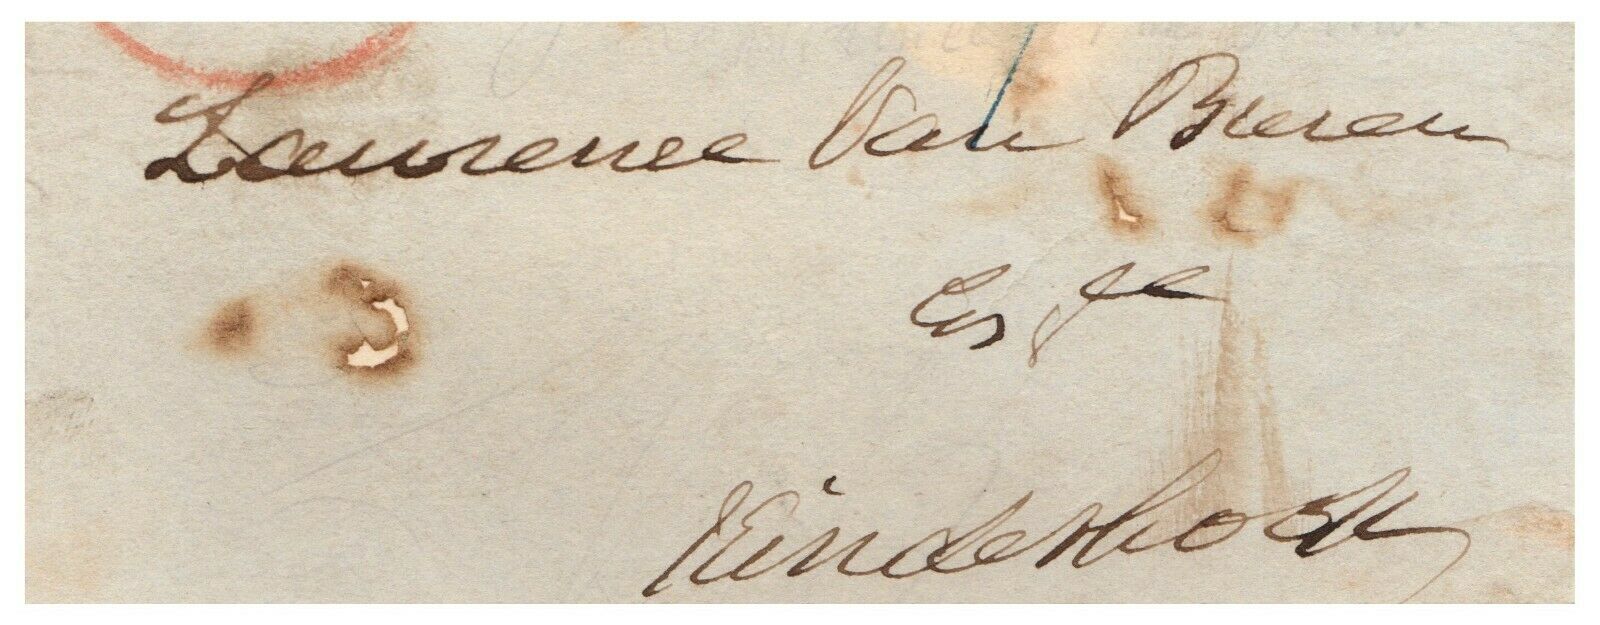 Laurence Van Buren
Esqre
Kinderhook